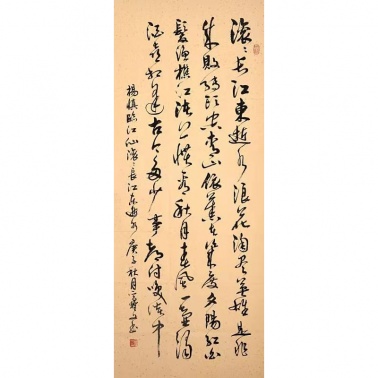 滚々长江東逝水浪花淘尽英雄是非
成敗转头空青山依舊在幾度夕陽红白
髮漁樵江渚上惯看秋月春風一壶濁
酒喜相逢古今多少事都付笑谈中
楊慎臨江仙滚々長江东逝水庚子秋月书